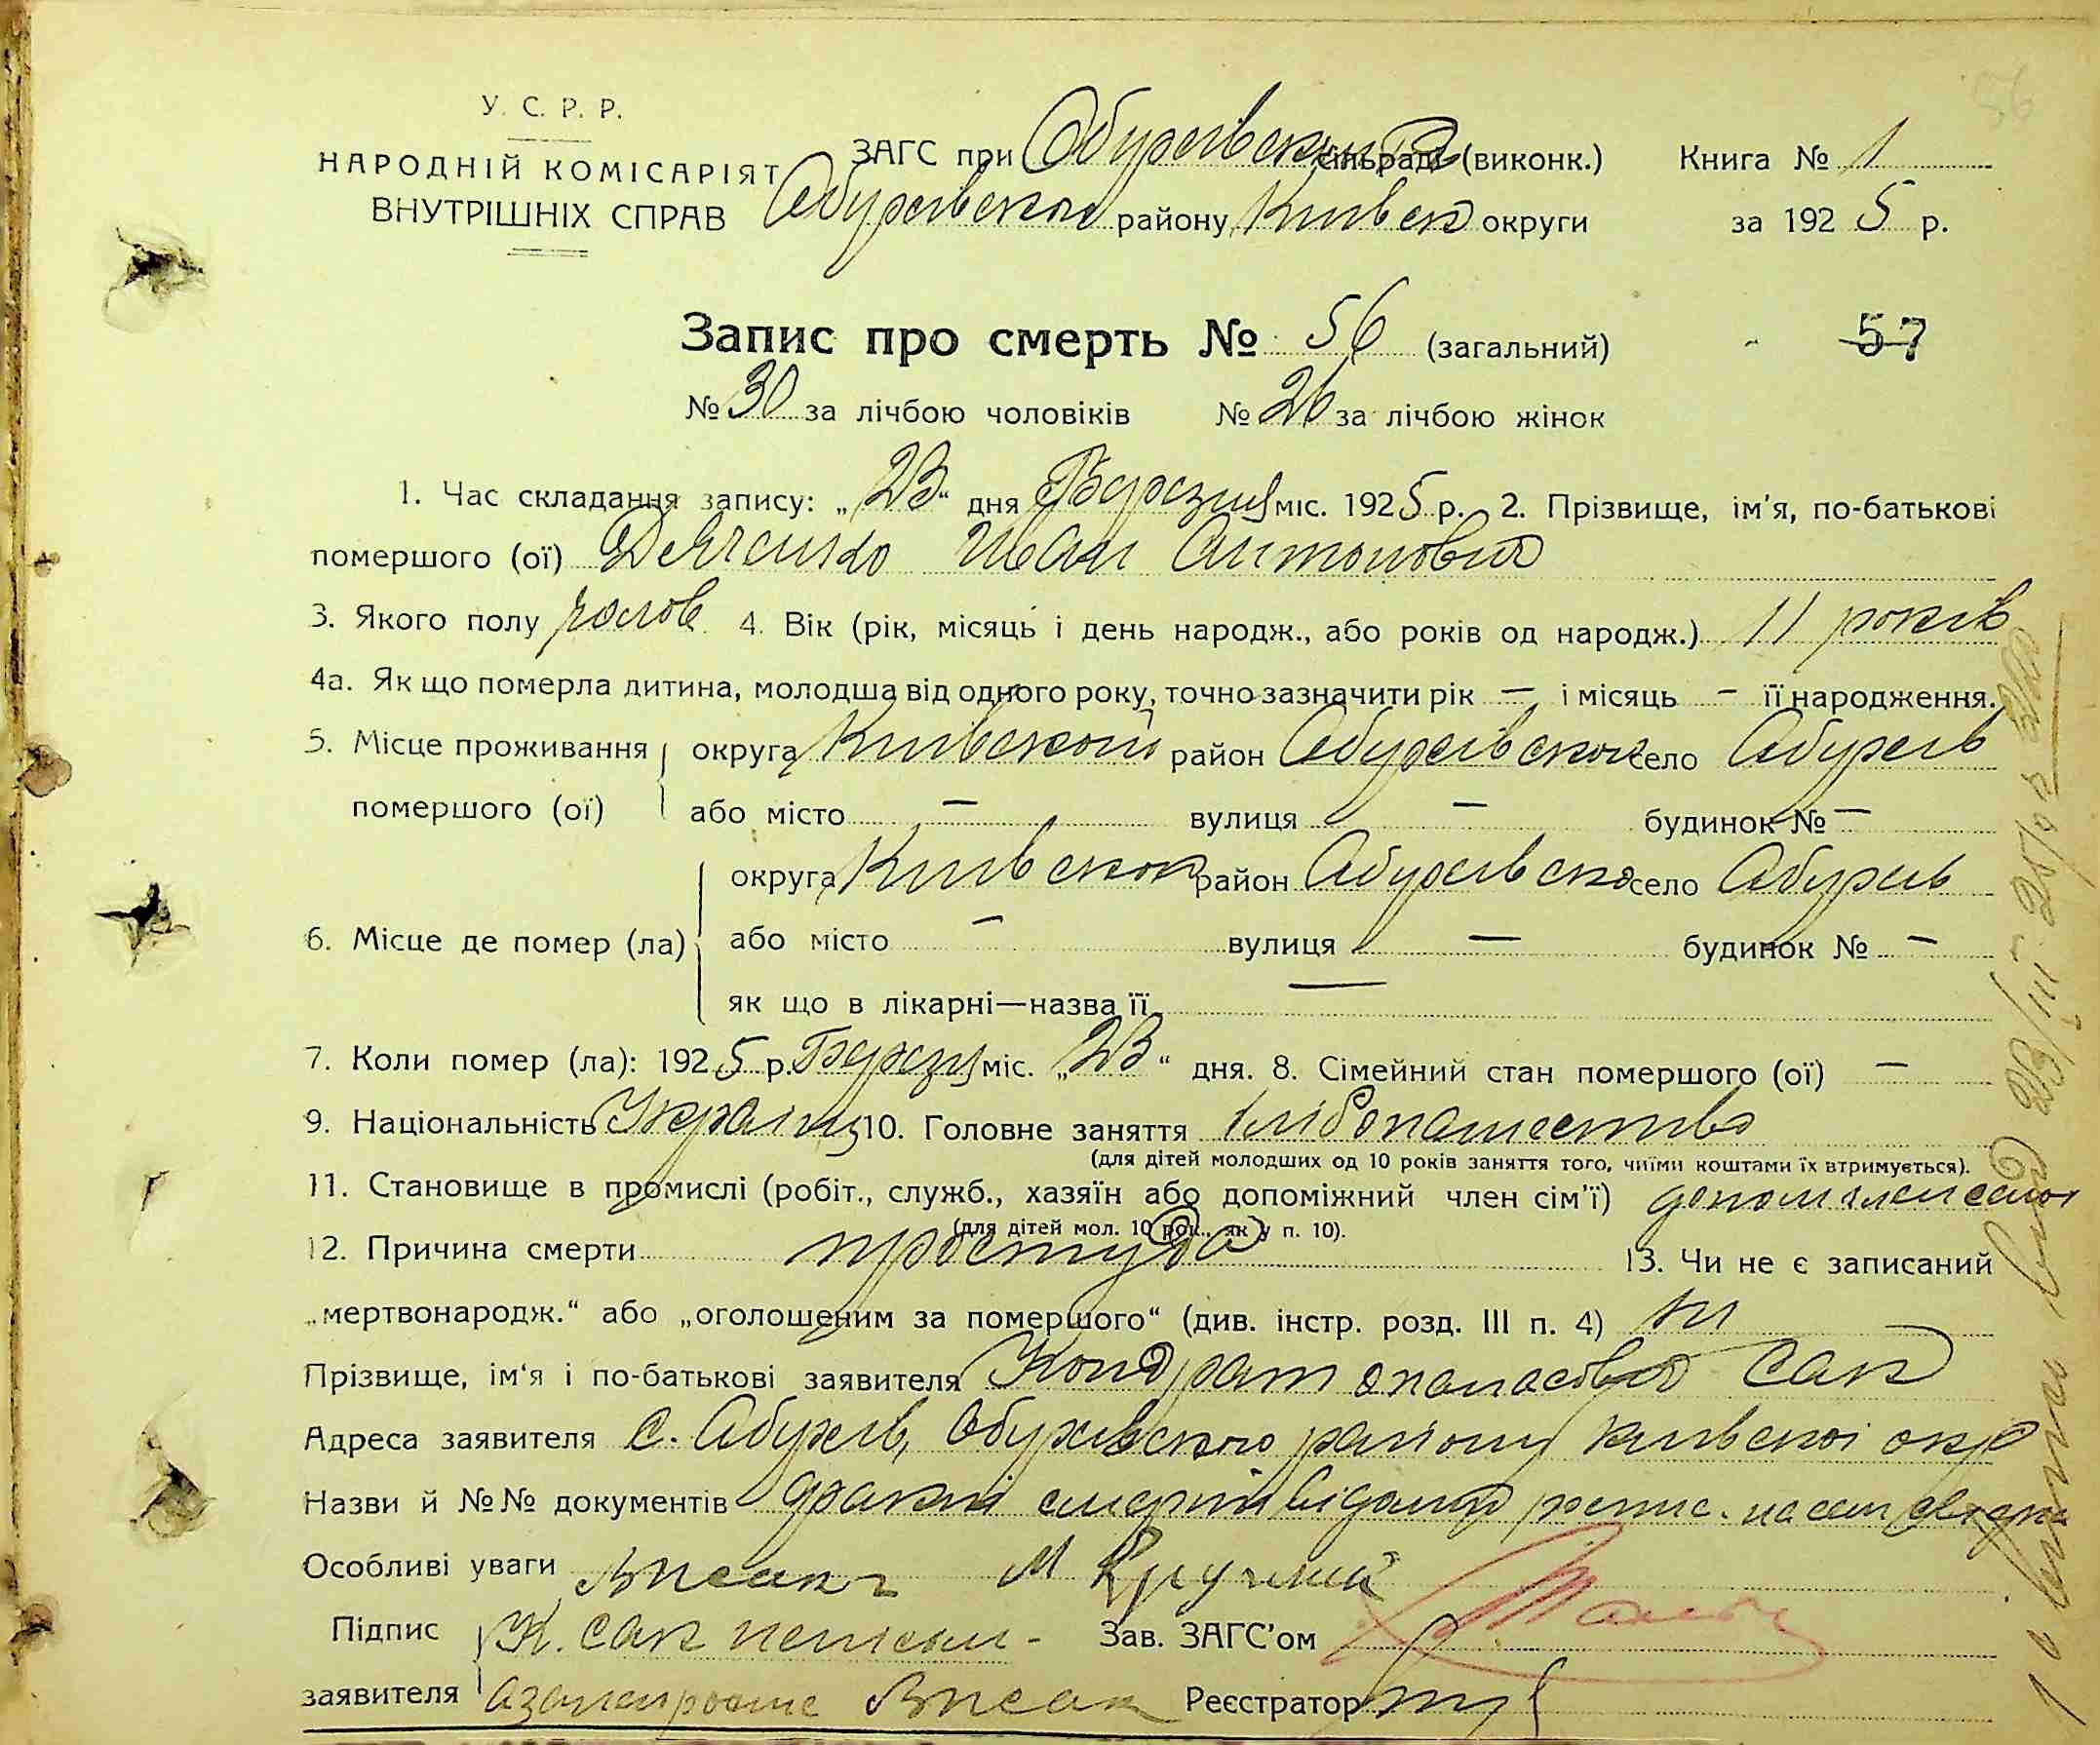 56
У. С. Р. Р.
НАРОДНІЙ КОМІСАРІЯТ
ВНУТРІШНІХ СПРАВ
ЗАГС при Обухівським сільраді (виконк.)
Обухівського району Київськ округи
Книга № 1
за 1925 р.
Запис про смерть № 56 (загальний)
57
№ 30 за лічбою чоловіків № 26 за лічбою жінок
1. Час складання запису: „23“ дня Березня міс. 1925 р. 2. Прізвище, ім'я, по-батькові
помершого (ої) Іван Антонович
3. Якого полу чолов. 4. Вік (рік, місяць і день народж., або років од народж.) 11 років
4а. Як що померла дитина, молодша від одного року, точно зазначити рік — і місяць — її народження.
5. Місце проживання помершого (ої) округа Київської район Обухівського село Обухів
або місто — вулиця — будинок № —
6. Місце де помер (ла) округа Київської район Обухівсько село Обухів
або місто — вулиця — будинок № —
як що в лікарні—назва її —
7. Коли помер (ла): 1925 р. Березня міс. „23“ дня. 8. Сімейний стан помершого (ої) —
9. Національність Україн 10. Головне заняття хлібопашество
(для дітей молодших од 10 років заняття того, чиїми коштами їх втримується).
11. Становище в промислі (робіт., служб., хазяїн або допоміжний член сім'ї) допом член
(для дітей мол. 10 рок., як у п. 10).
12. Причина смерти простуда 13. Чи не є записаний
„мертвонародж.“ або „оголошеним за помершого“ (див. інстр. розд. III п. 4) ні
Прізвище, ім'я і по-батькові заявителя Кондрат Сак
Адреса заявителя с. Обухів, Обухівського району Київської окр
Назви й №№ документів смерти
Особливі уваги
Підпис заявителя К. Сак Зав. ЗАГС'ом
Реєстратор